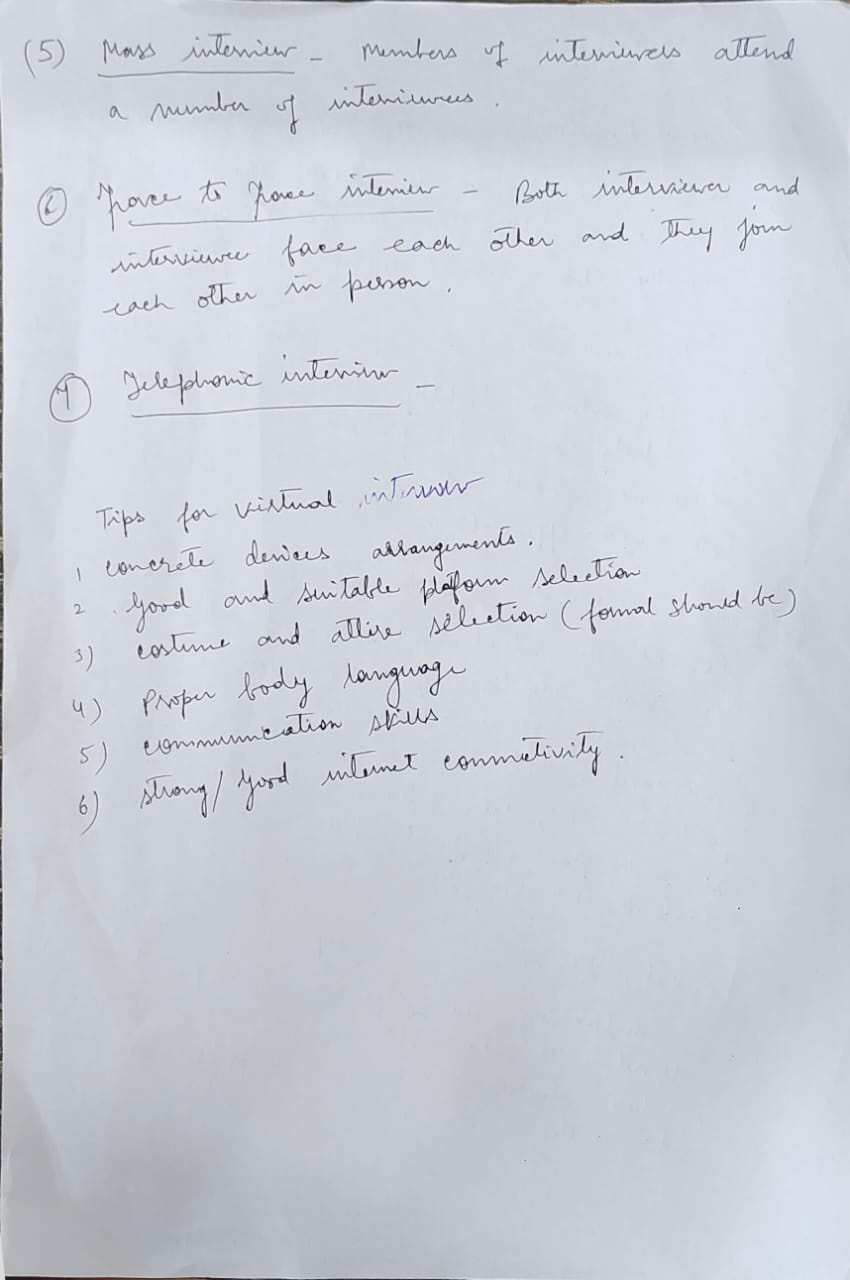 (5) Mass interview - Members of interviewers attend
a number of interviewees.
(6) Face to Face interview - Both interviewer and
interviewee face each other and they join
each other in person.
(7) Telephonic interview -
Tips for virtual interview
1 concrete devices arrangements.
2. Good and suitable platform selection
3) costume and attire selection (formal should be)
4) Proper body language
5) communication skills
6) strong/Good internet connectivity.